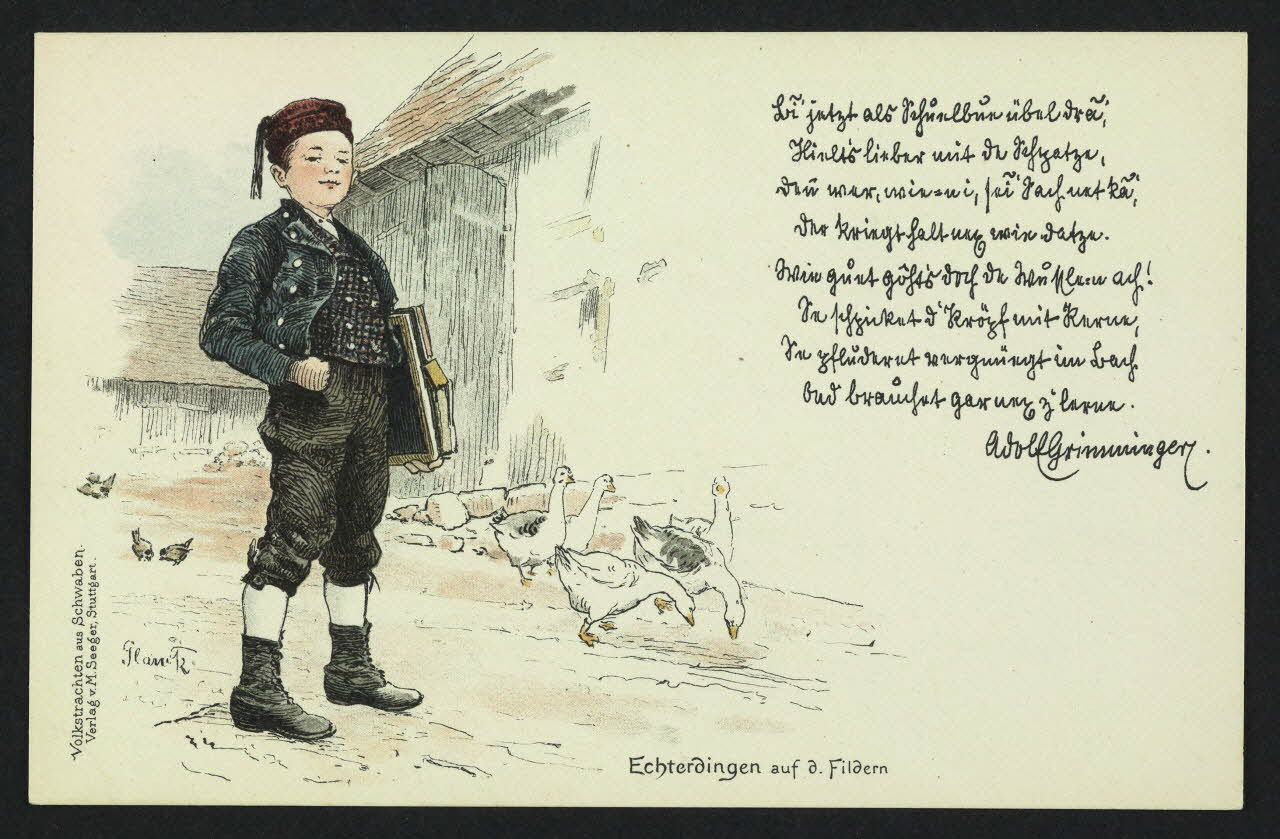 Bĩ jetzt als Schuelbue übel drã,
Hielt's lieber mit de Schpatze,
Den̄ wer, wie-n-i, sei͂ Sach net kã,
der kriegt halt nex wie datze.
Wie guet göht's doch de Wusle-n ach!
Se schpicket d'Kröpf mit Kerne,
Se pfluderet vergnüegt im Bach
Ond brauchet gar nex z'lerne.
Adolf Grimminger.
Volkstrachten aus Schwaben.
Verlag v. M. Seeger, Stuttgart.
Echterdingen auf d. Fildern